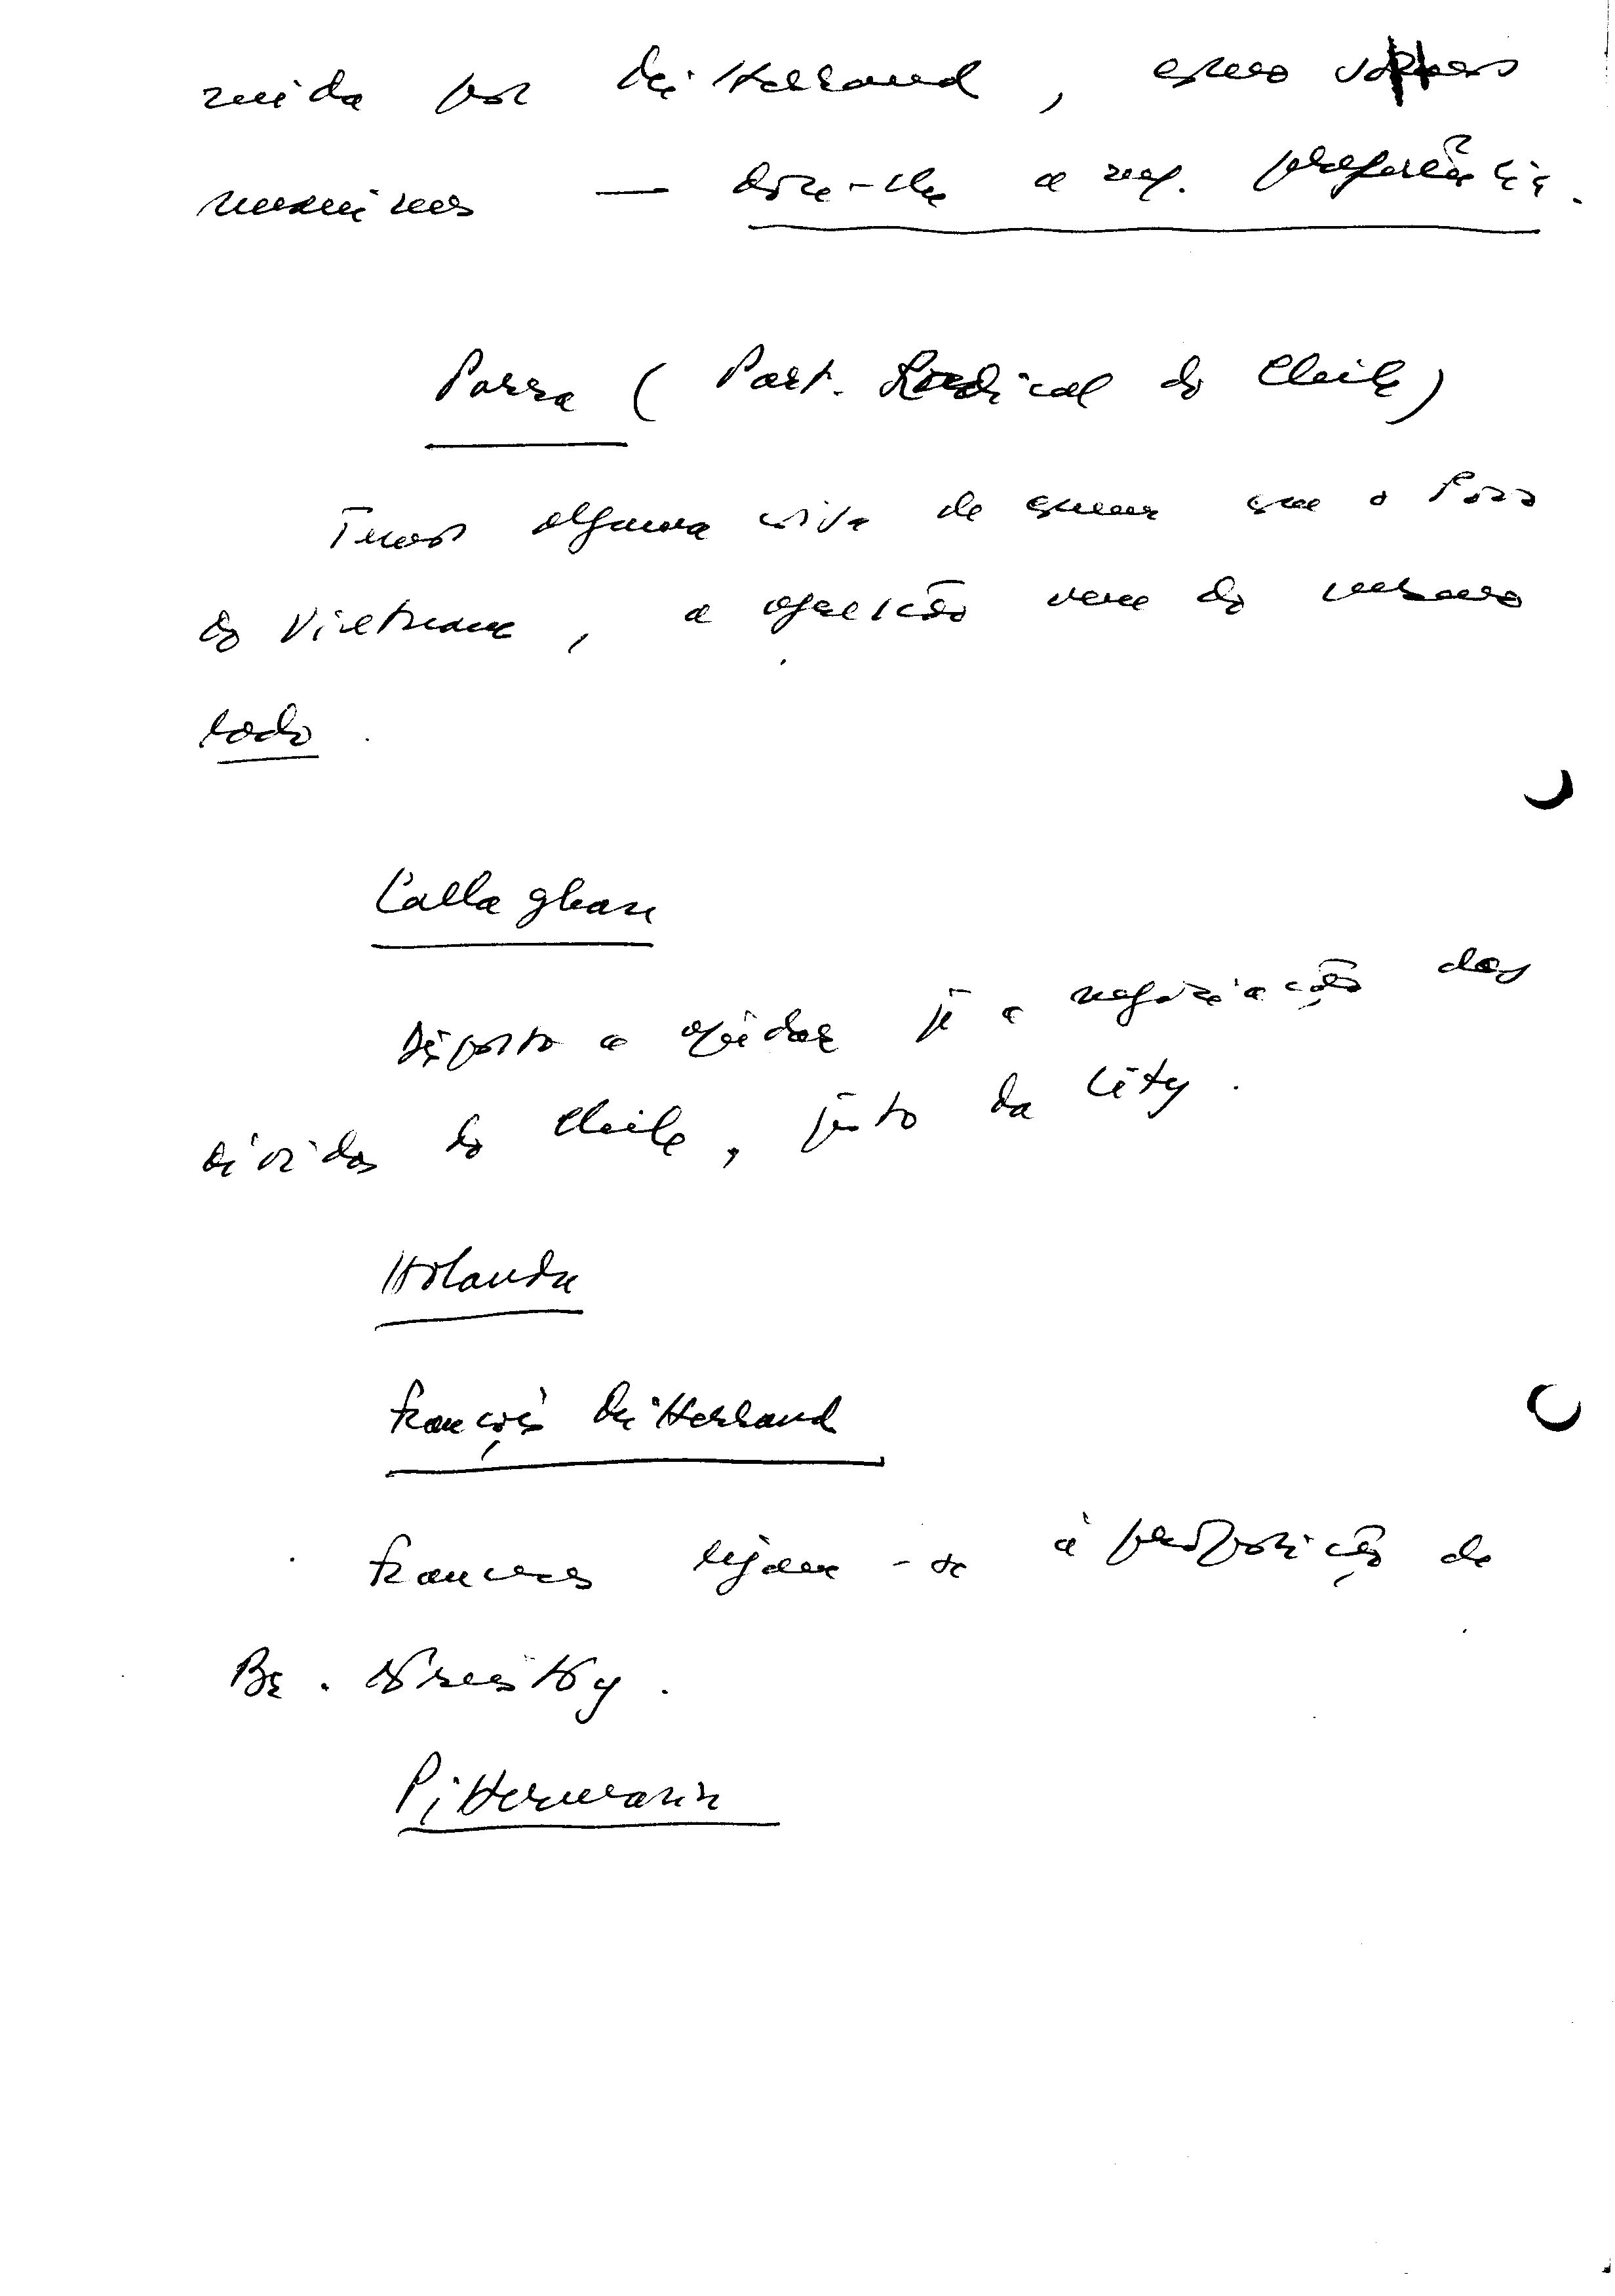 mida por Mitterrand, como votamos
mesmo — dar-lhe a neg. preferência.
Parra (Part. Radical do Chile)
Temos alguma coisa de comum que o Povo
do Vietnam, a agressão vem do mesmo
lado.
Callaghan
Disposto a ajudar já a negociação das
dívidas do Chile, junto da City.
Holanda
François Mitterrand
Franceses ligam-se à proposição de
Br. Kreisky.
Pittermann